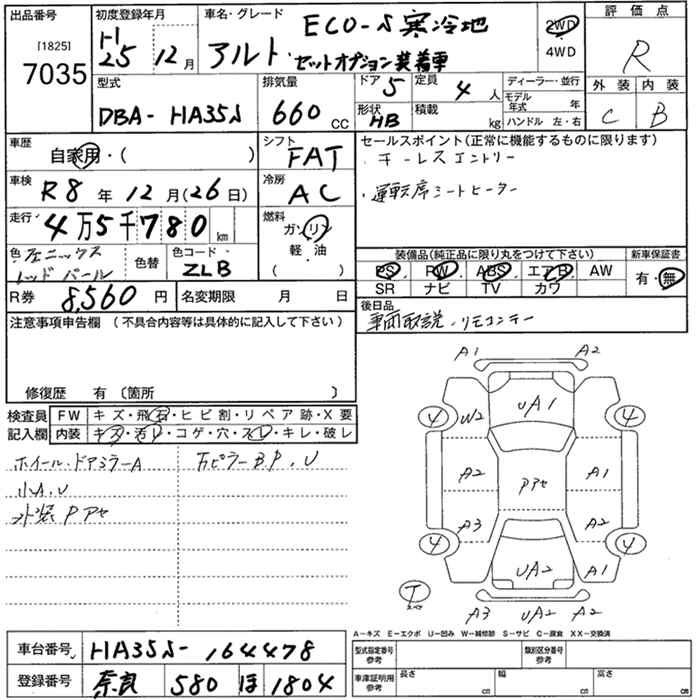 出品番号
[1825]
7035
初度登録年月
H
25 12 月
車名・グレード
ECO-S 寒冷地
アルト・セットオプション装着車
2WD
・
4WD
評価点
R
外装 内装
C B
型式
DBA- HA35S
排気量
660 CC
ドア 5
形状 HB
定員 4 人
積載 kg
ディーラー・並行
モデル年式 年
ハンドル 左・右
車歴
自家用・( )
シフト
FAT
車検
R8 年 12 月(26 日)
冷房
AC
走行
4万5千780 km
燃料
ガソリン
軽・油
( )
色 フェニックスレッドパール
色替
色コード
ZLB
R券 8,560 円
名変期限 月 日
セールスポイント(正常に機能するものに限ります)
・キーレスエントリー
・運転席シートヒーター
装備品(純正品に限り丸をつけて下さい)
PS PW ABS エアB AW
SR ナビ TV カワ
新車保証書
有・無
後日品
車両取説・リモコンキー
注意事項申告欄(不具合内容等は具体的に記入して下さい)
修復歴 有(箇所 )
検査員記入欄
FW キズ・飛石・ヒビ割・リペア跡・X要
内装 キズ・汚レ・コゲ・穴・スレ・キレ・破レ
ホイール・ドアミラーA
小A.U
外装Pアセ
万ピラーBP.U
A1 A2
UA1
4 W2 4
A2 Pアセ A1
A3 A2
4 4
UA2 A1
T
スペア
A3 UA2 A2
A-キズ E-エクボ U-凹み W-補修跡 S-サビ C-腐食 XX-交換済
車台番号 HA35S-164478
登録番号 奈良 580 ほ 1804
型式指定番号 参考
類別区分番号 参考
車庫証明用 参考
長さ cm
幅 cm
高さ cm